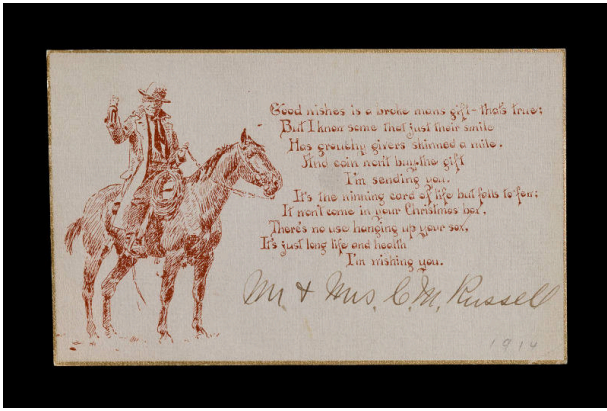 Good wishes is a broke mans gift-that's true;
But I know some that just their smile
Has grouchy givers skinned a mile.
And coin won't buy the gift
I'm sending you.
It's the winning card of life but falls to few;
It won't come in your Christmas box.
There's no use hanging up your sox,
It's just long life and health
I'm wishing you.
Mr. & Mrs. C. M. Russell
1914